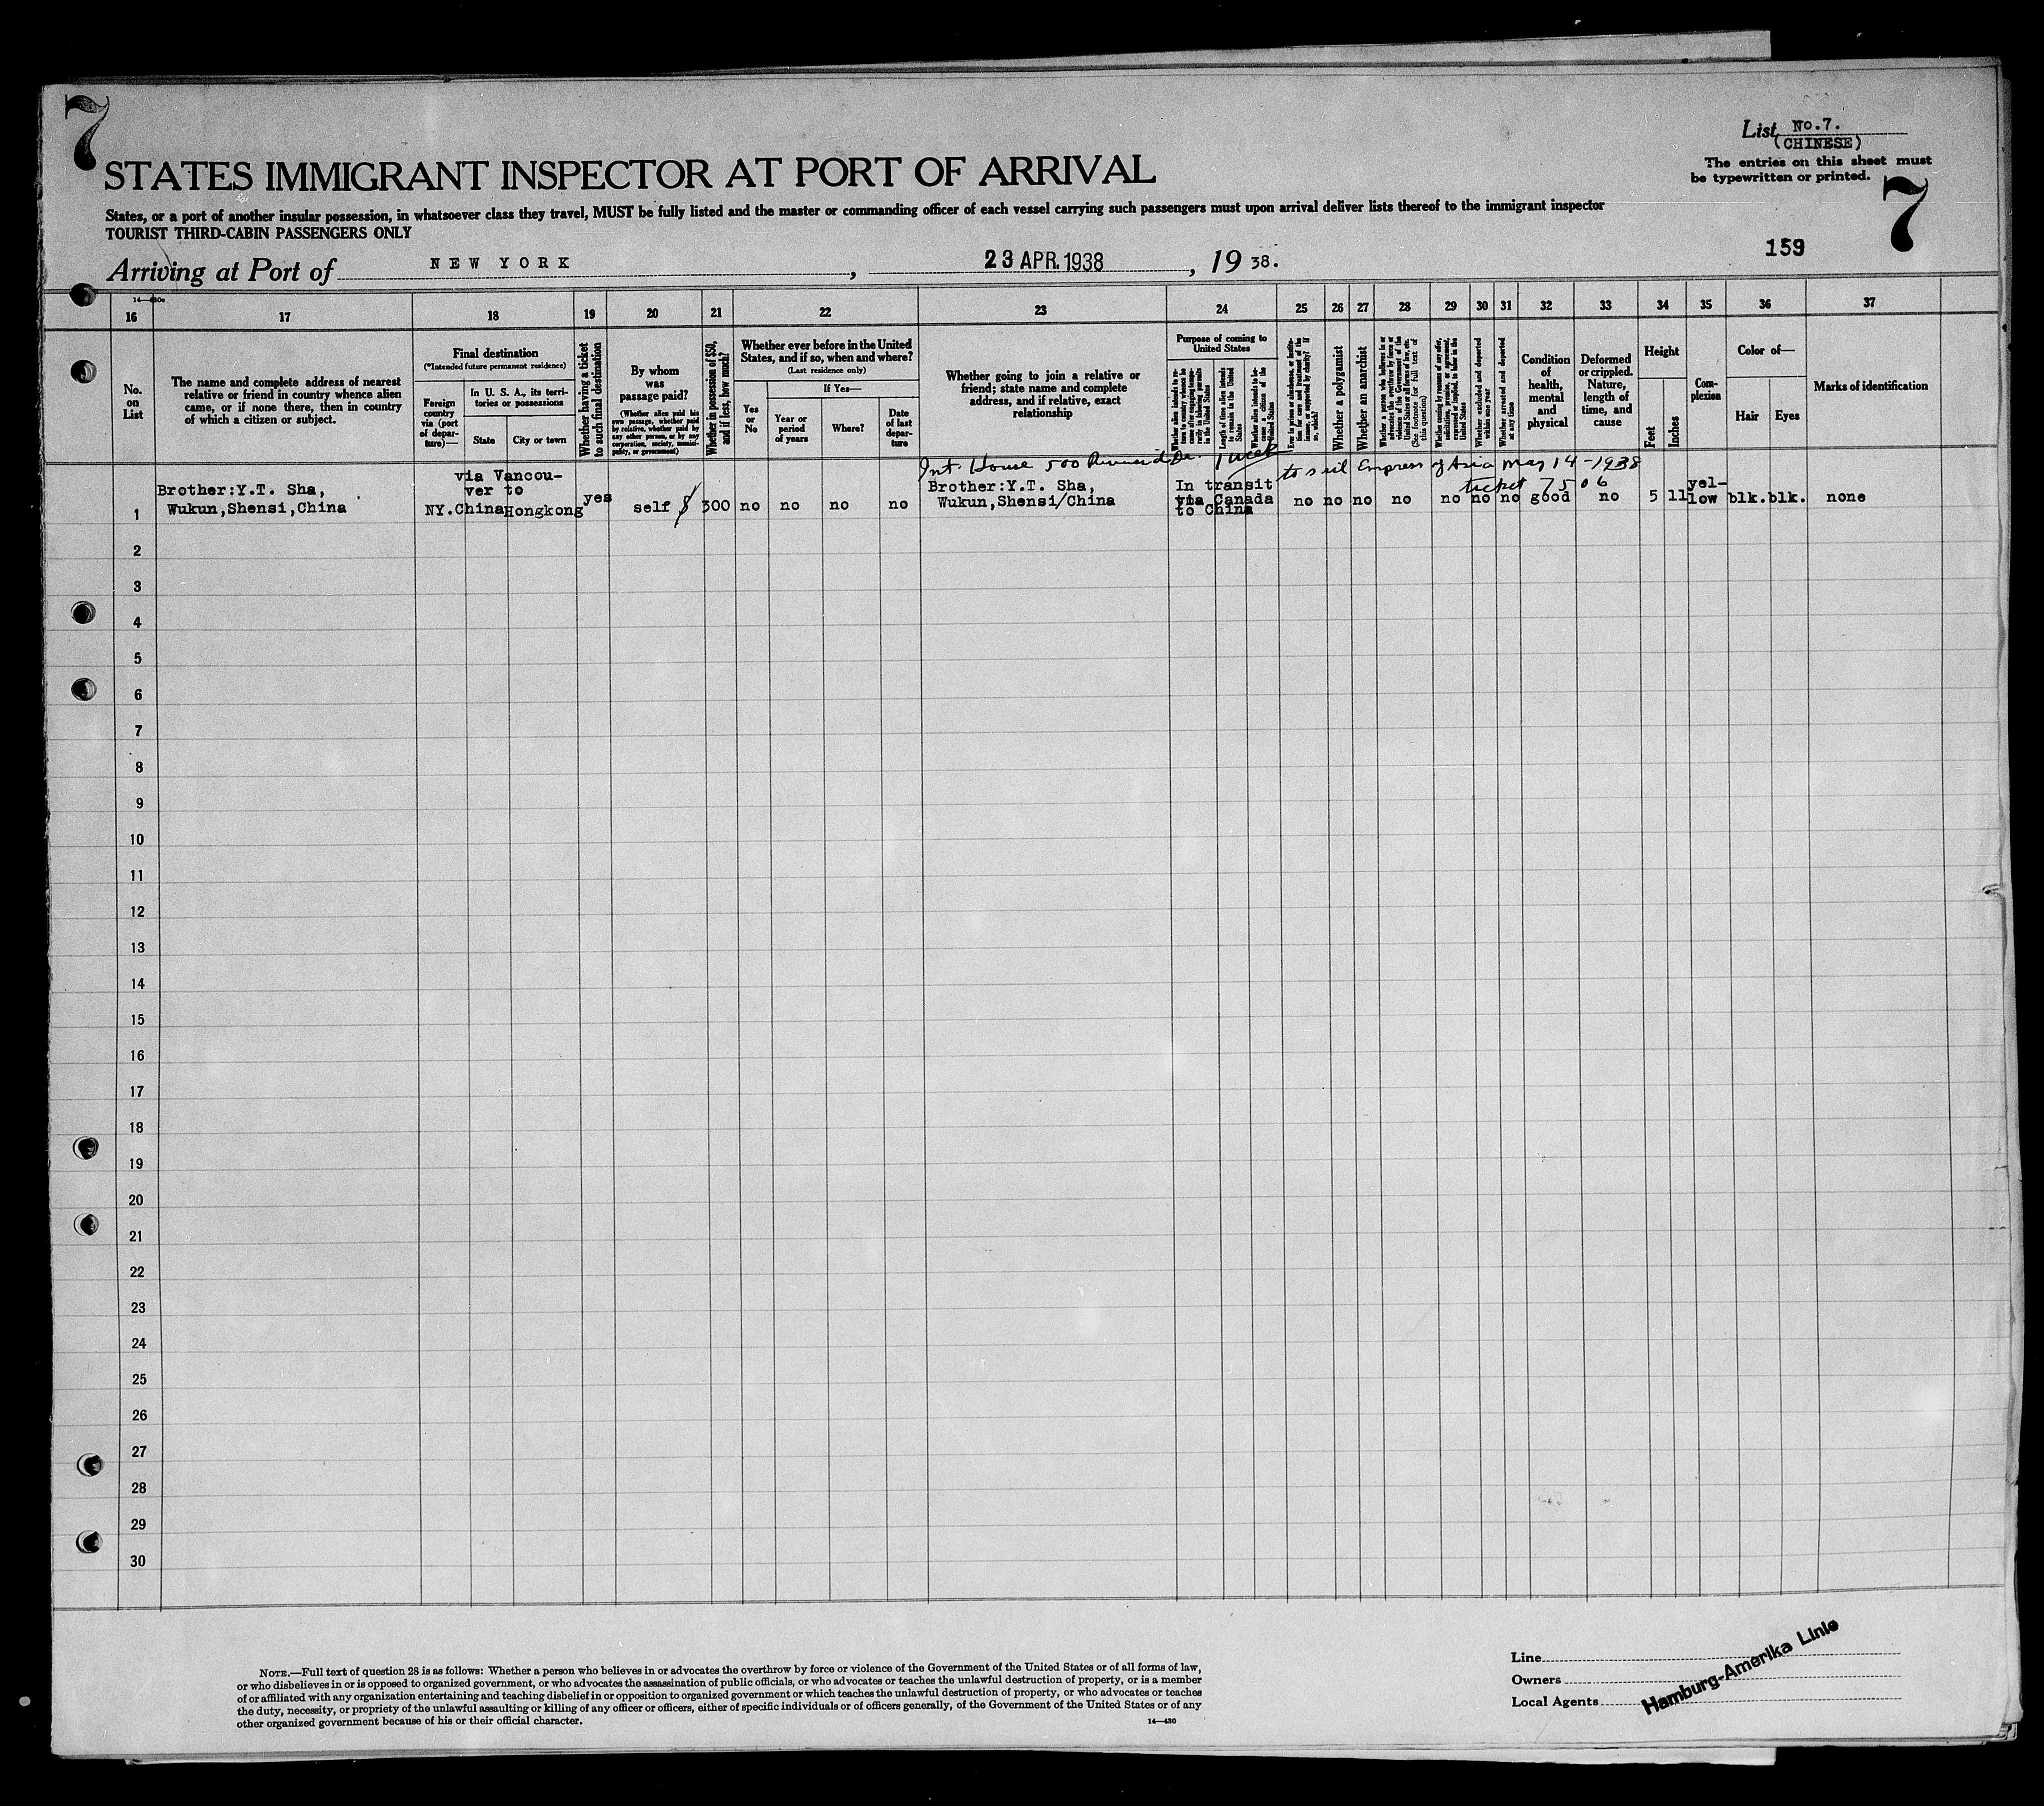 7
List No. 7.
(CHINESE)
The entries on this sheet must
be typewritten or printed.
7
STATES IMMIGRANT INSPECTOR AT PORT OF ARRIVAL
States, or a port of another insular possession, in whatsoever class they travel, MUST be fully listed and the master or commanding officer of each vessel carrying such passengers must upon arrival deliver lists thereof to the immigrant inspector
TOURIST THIRD-CABIN PASSENGERS ONLY
159
Arriving at Port of NEW YORK, 23 APR. 1938, 19 38.
16 17 18 19 20 21 22 23 24 25 26 27 28 29 30 31 32 33 34 35 36 37
No.
on
List
The name and complete address of nearest
relative or friend in country whence alien
came, or if none there, then in country
of which a citizen or subject.
Final destination
(*Intended future permanent residence)
Foreign
country
via (port
of depar-
ture)—
In U. S. A., its terri-
tories or possessions
State
City or town
Whether having a ticket
to such final destination
By whom
was
passage paid?
(Whether alien paid his
own passage, whether paid
by relative, whether paid by
any other person, or by any
corporation, society, munici-
pality, or government)
Whether in possession of $50,
and if less, how much?
Whether ever before in the United
States, and if so, when and where?
(Last residence only)
Yes
or
No
If Yes—
Year or
period
of years
Where?
Date
of last
depar-
ture
Whether going to join a relative or
friend; state name and complete
address, and if relative, exact
relationship
Purpose of coming to
United States
Length of time alien intends
to remain in the United
States
Whether alien intends to be-
come a citizen of the
United States
Whether a polygamist
Whether an anarchist
Whether excluded and deported
within one year
Whether arrested and deported
at any time
Condition
of
health,
mental
and
physical
Deformed
or crippled.
Nature,
length of
time, and
cause
Height
Feet
Inches
Com-
plexion
Color of—
Hair
Eyes
Marks of identification
Int. House 500 Riverside Dr. 1 week
to sail Empress of Asia May 14-1938
ticket 7506
1 Brother:Y.T. Sha,
Wukun,Shensi,China
via Vancou-
ver to
NY.China Hongkong
yes self $ 300 no no no no
Brother:Y.T. Sha,
Wukun,Shensi/China
In transit
via Canada
to China
no no no no no no no good no 5 11 yel-
low blk. blk. none
2
3
4
5
6
7
8
9
10
11
12
13
14
15
16
17
18
19
20
21
22
23
24
25
26
27
28
29
30
NOTE.—Full text of question 28 is as follows: Whether a person who believes in or advocates the overthrow by force or violence of the Government of the United States or of all forms of law,
or who disbelieves in or is opposed to organized government, or who advocates the assassination of public officials, or who advocates or teaches the unlawful destruction of property, or is a member
of or affiliated with any organization entertaining and teaching disbelief in or opposition to organized government or which teaches the unlawful destruction of property, or who advocates or teaches
the duty, necessity, or propriety of the unlawful assaulting or killing of any officer or officers, either of specific individuals or of officers generally, of the Government of the United States or of any
other organized government because of his or their official character.
14—430
Line
Owners
Local Agents
Hamburg-Amerika Linie